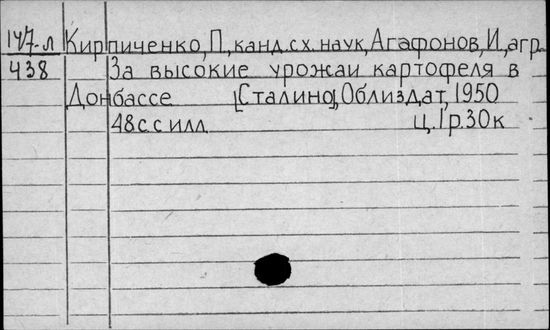 147-л Кирпиченко, П., канд. с.х. наук, Агафонов, И., агр.
438 За высокие урожаи картофеля в
Донбассе [Сталино], Облиздат, 1950
48 с. с илл. ц. 1 р. 30 к